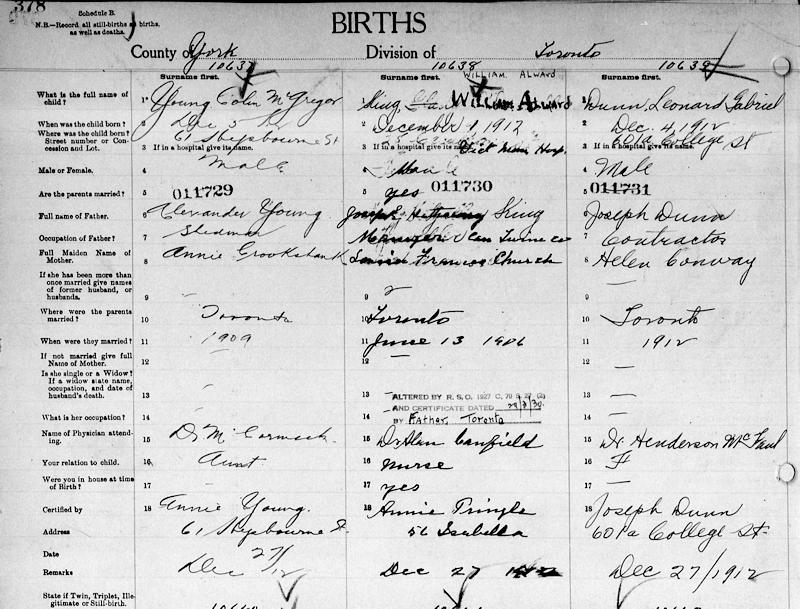 378
Schedule B.
N.B.—Record all still-births as births,
as well as deaths.
BIRTHS
County of York Division of Toronto
10637 10638 10639
WILLIAM ALWARD
Surname first. Surname first. Surname first.
What is the full name of child? 1 Young Colin McGregor King William Alward 1 Dunn, Leonard Gabriel
When was the child born? 2 Dec 5 2 December 1, 1912 2 Dec. 4, 1912
Where was the child born? Street number or Concession and Lot. 61 St 601a College St
3 If in a hospital give its name. 3 If in a hospital give its name. Hosp. 3 If in a hospital give its name.
Male or Female. 4 Male 4 Male 4 Male
Are the parents married? 5 011729 5 yes 011730 5 011731
Full name of Father. 6 Alexander Young Joseph King 6 Joseph Dunn
Occupation of Father? 7 Manager 7 Contractor
Full Maiden Name of Mother. 8 Annie Crookshank Francis Church 8 Helen Conway
If she has been more than once married give names of former husband, or husbands. 9 — 9 9 —
Where were the parents married? 10 Toronto 10 Toronto 10 Toronto
When were they married? 11 1909 11 June 13 1906 11 1912
If not married give full Name of Mother. 12 12 — 12 —
Is she single or a Widow? If a widow state name, occupation, and date of husband's death. 13 13 13 —
ALTERED BY R.S.O. 1927 C. 78 S. 27 (2)
AND CERTIFICATE DATED
What is her occupation? 14 14 BY Father, Toronto 14 —
Name of Physician attending. 15 Dr McCormack 15 Dr Alan Canfield 15 Dr. Henderson
Your relation to child. 16 Aunt 16 nurse 16 F
Were you in house at time of Birth? 17 17 yes 17 —
Certified by 18 Annie Young 18 Annie Pringle 18 Joseph Dunn
Address 61 St 56 Isabella 601a College St
Date Dec 27/12 Dec 27 1912 Dec 27/1912
Remarks
State if Twin, Triplet, Illegitimate or Still-birth.